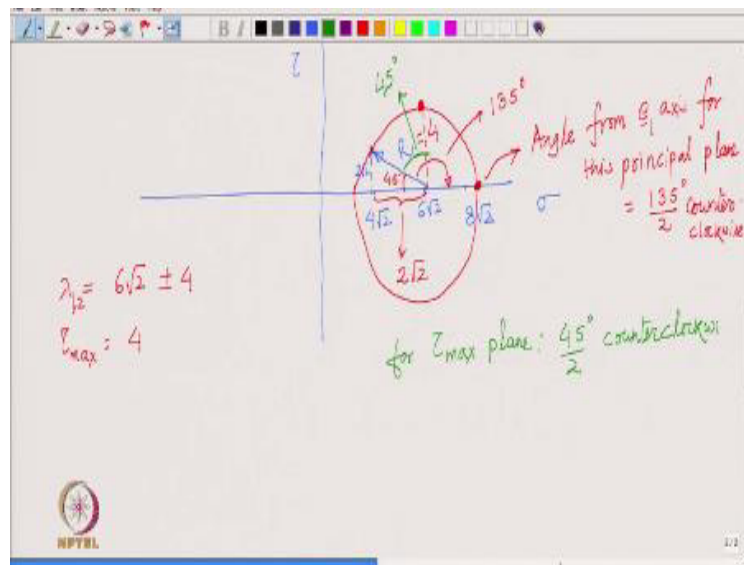 τ
45°
135°
R=4
45°
4√2
6√2
8√2
σ
2√2
Angle from e₁ axis for
this principal plane
= 135°/2 counter
clockwise
λ₁,₂ = 6√2 ± 4
τmax = 4
for τmax plane: 45°/2 counterclockwi
NPTEL